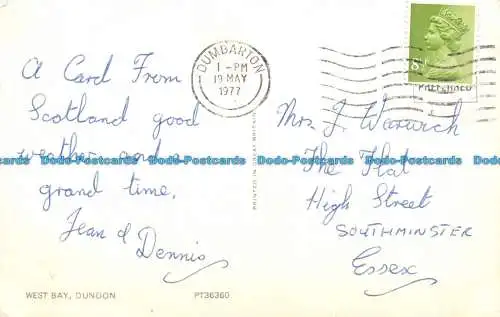 A Card From
Scotland good
weather and
grand time.
Jean &
Dennis
WEST BAY, DUNOON
PT36360
PRINTED IN GREAT BRITAIN
DUMBARTON
1 - PM
19 MAY
1977
Mrs J. Warwich
The Flat
High Street
SOUTHMINSTER
Essex
Dodo-Postcards Dodo-Postcards Dodo-Postcards Dodo-Postcards Dodo-Postcards